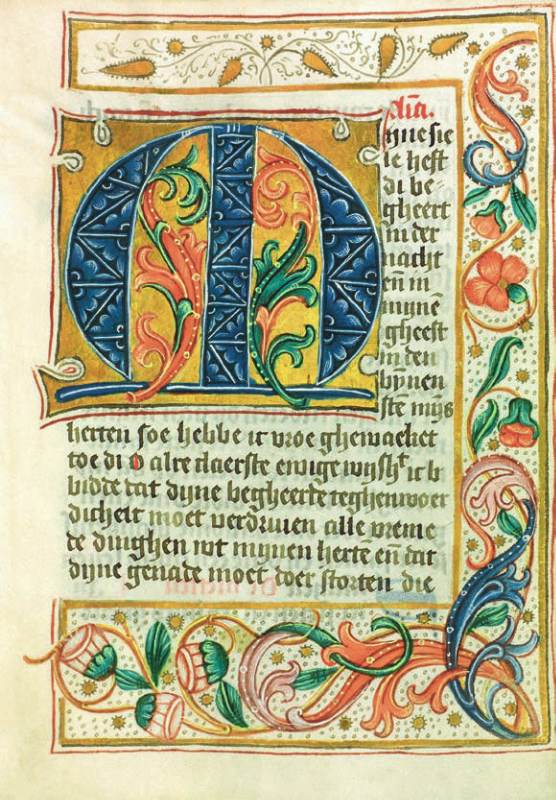 Myne sie
le heft
di be-
gheert
in der
nacht
en̄ in
mynē
gheest
in den
bynen
ste mijs
herten soe hebbe ic vroe ghewaeket
toe di o alre claerste ewige wijsht ic b
bidde dat dyne begheerte teghenwoer
dicheit moet verdriuen alle vreme
de dinghen wt mijnen herte en̄ dat
dijne genade moet doer storten die